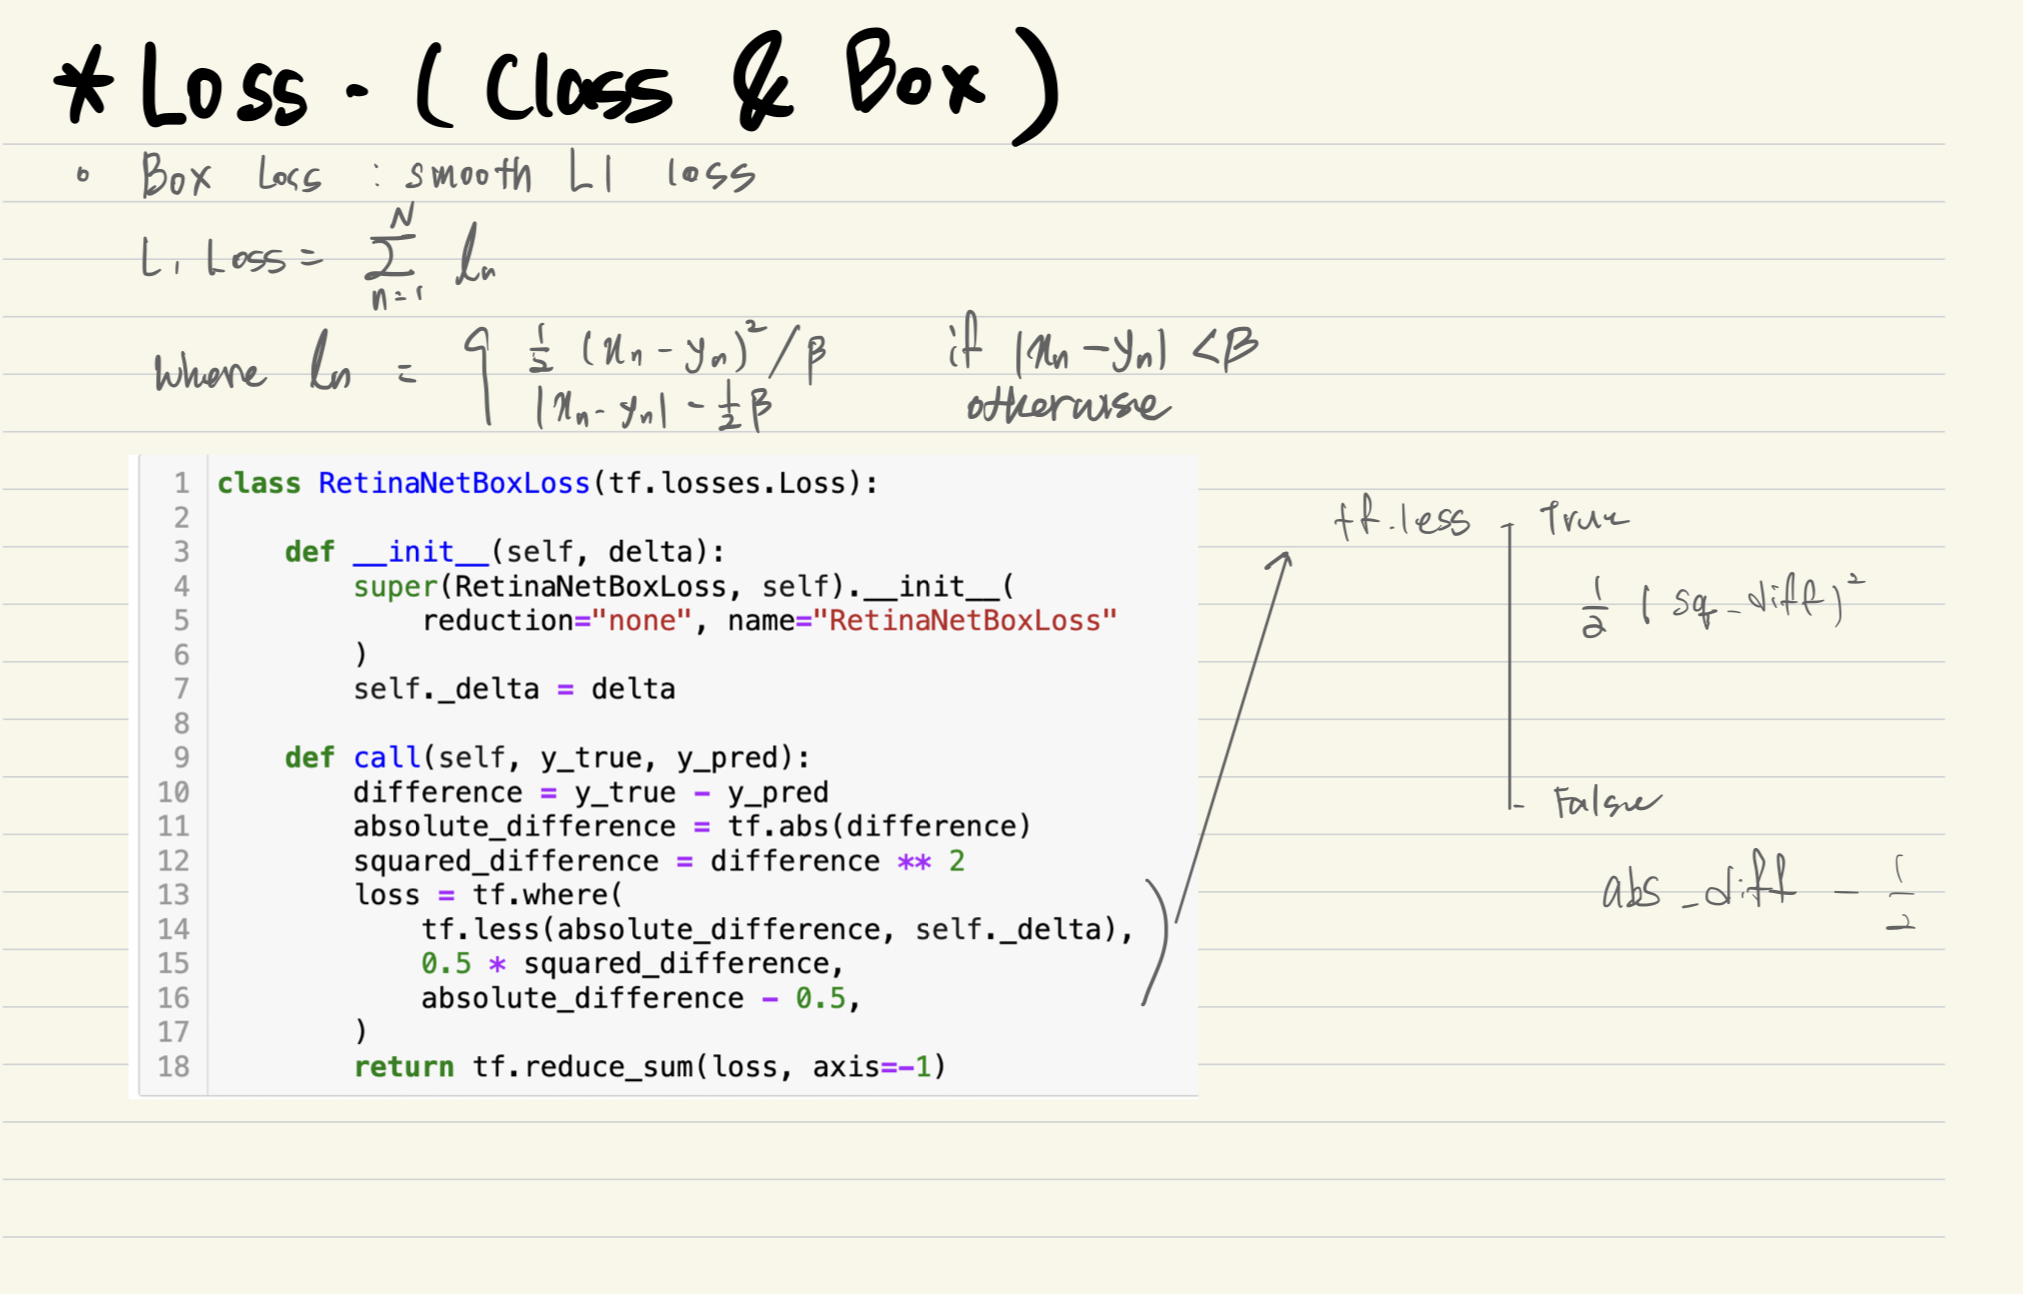 * Loss - (Class & Box)
◦ Box Loss : smooth L1 loss
L1 Loss = ∑_{n=1}^{N} ln
where ln = { 1/2 (xn - yn)² / β if |xn - yn| < β
|xn - yn| - 1/2 β otherwise
1 class RetinaNetBoxLoss(tf.losses.Loss):
2
3 def __init__(self, delta):
4 super(RetinaNetBoxLoss, self).__init__(
5 reduction="none", name="RetinaNetBoxLoss"
6 )
7 self._delta = delta
8
9 def call(self, y_true, y_pred):
10 difference = y_true - y_pred
11 absolute_difference = tf.abs(difference)
12 squared_difference = difference ** 2
13 loss = tf.where(
14 tf.less(absolute_difference, self._delta),
15 0.5 * squared_difference,
16 absolute_difference - 0.5,
17 )
18 return tf.reduce_sum(loss, axis=-1)
tf.less - True
1/2 (sq_diff)²
- False
abs_diff - 1/2